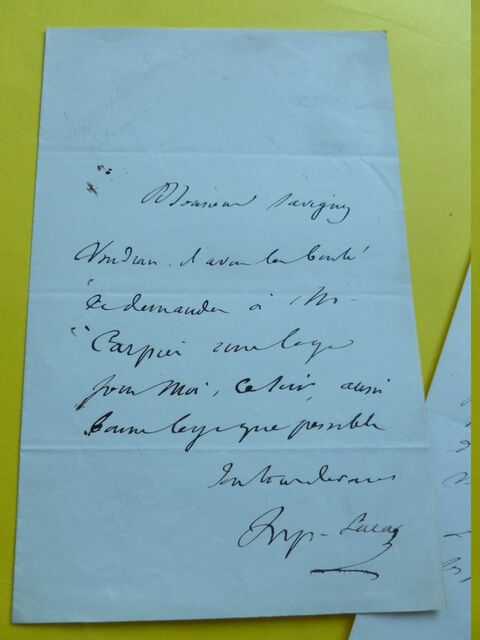 Monsieur Savigny
Voudrait-il avoir la bonté
de demander à Mr
Carpier une loge
pour moi, ce soir, aussi
bonne loge que possible
Hyp. Lucas